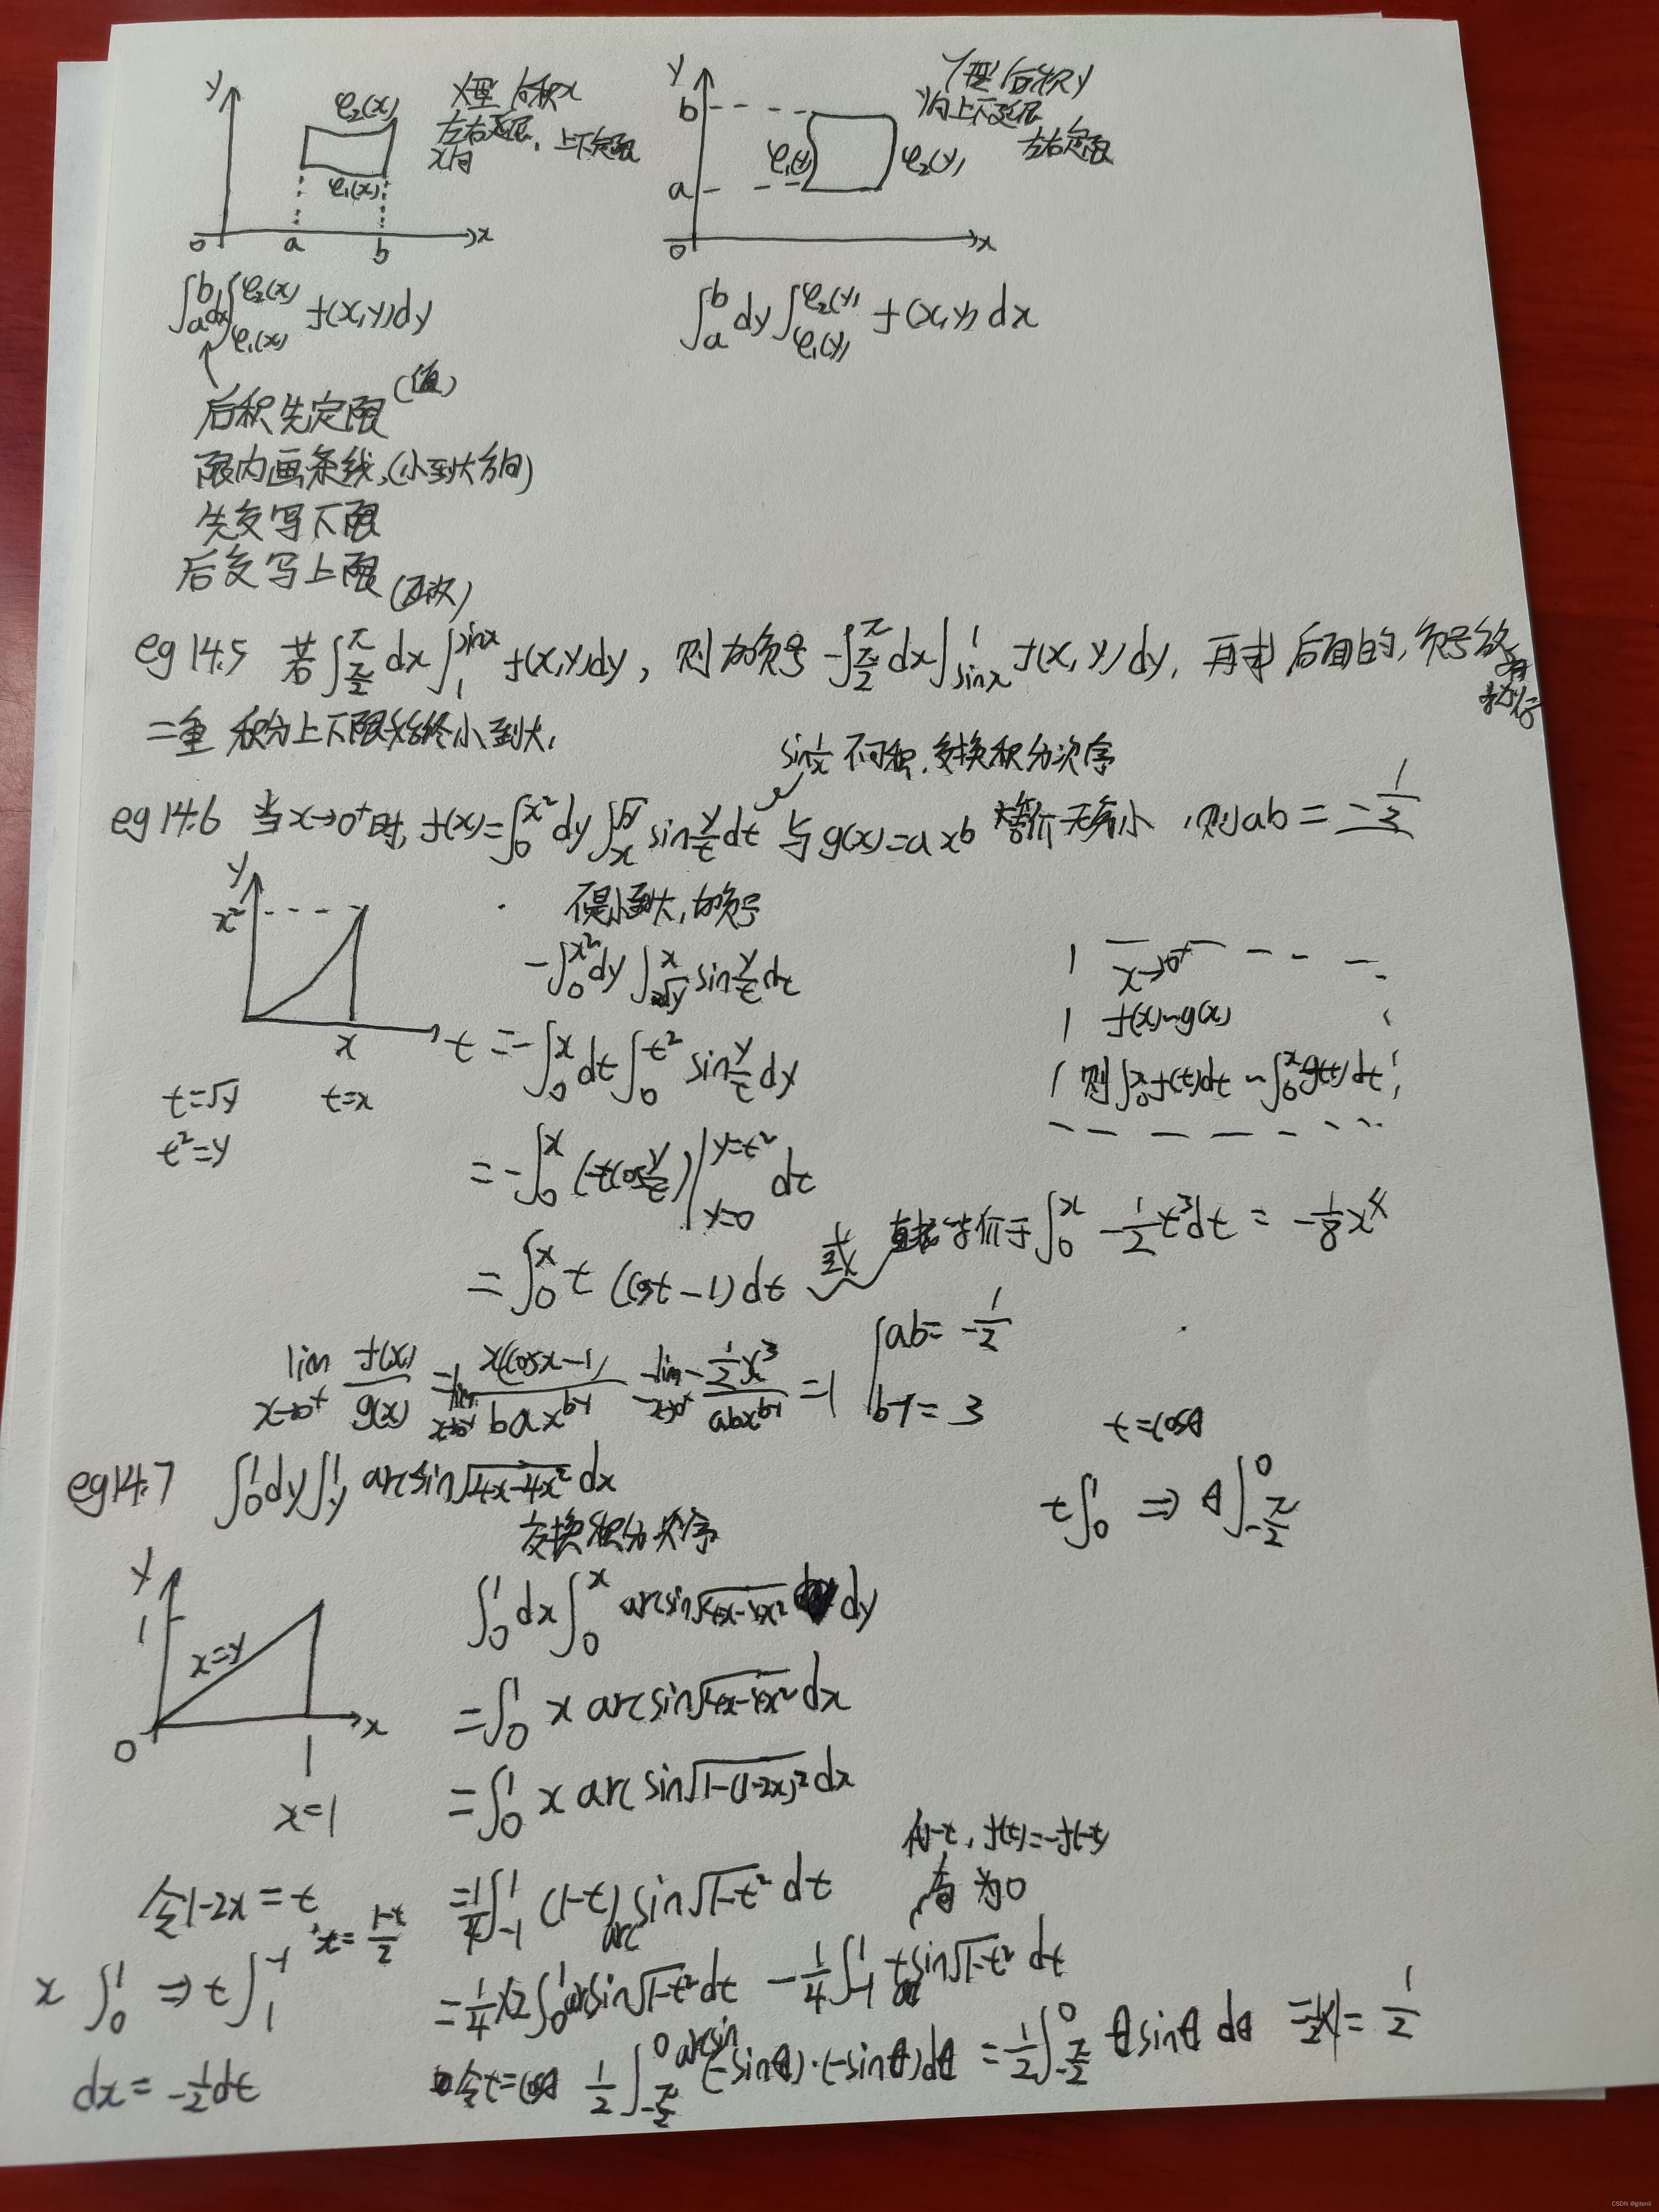 y φ₂(x) φ₁(x) 0 a b x
X型 后积x
左右延展，上下定限
x向
y b a φ₁(y) φ₂(y) 0 x
Y型 后积y
y向上下延展
左右定限
∫_a^b dx∫_{φ₁(x)}^{φ₂(x)} f(x,y)dy
∫_a^b dy∫_{φ₁(y)}^{φ₂(y)} f(x,y)dx
后积先定限(值)
限内画条线,(小到大方向)
先交写下限
后交写上限
eg14.5 若∫_{π/2}^{π} dx∫_1^{sinx} f(x,y)dy，则加负号 -∫_{π/2}^{π} dx∫_{sinx}^1 f(x,y)dy，再求后面的,负号放
二重积分上下限始终小到大,
sin1/x 不可积,交换积分次序
eg14.6 当x→0⁺时,f(x)=∫_0^{x²}dy∫_x^{√y} sin y/t dt 与g(x)=axᵇ 等价无穷小,则ab=-1/2
y x² x t
t=√y t=x
t²=y
不是小到大,加负号
-∫_0^{x²}dy∫_{√y}^x sin y/t dt
=-∫_0^x dt∫_0^{t²} sin y/t dy
=-∫_0^x (-tcos y/t)|_{y=0}^{y=t²} dt
=∫_0^x t(cost-1)dt 或 直接等价于∫_0^x -1/2 t³dt = -1/8 x⁴
x→0⁺
f(x)~g(x)
则∫_0^x f(t)dt ~ ∫_0^x g(t)dt
lim_{x→0⁺} f(x)/g(x) = lim_{x→0⁺} x(cosx-1)/(bax^{b-1}) = lim_{x→0⁺} -(1/2 x³)/(abx^{b-1}) =1 { ab=-1/2
b-1=3
eg14.7 ∫_0^1dy∫_y^1 arcsin√(4x-4x²) dx
交换积分次序
t=cosθ
t∫_0^1 ⇒ θ∫_{-π/2}^0
y 1 x=y 0 1 x
x=1
∫_0^1dx∫_0^x arcsin√(4x-4x²) dy
=∫_0^1 x arcsin√(4x-4x²) dx
=∫_0^1 x arcsin√(1-(1-2x)²) dx
令1-2x=t
x=(1-t)/2
=1/4∫_{-1}^1 (1-t)arcsin√(1-t²) dt
f(t)=-f(-t)
为0
x∫_0^1 ⇒ t∫_1^{-1}
=1/4×2∫_0^1 arcsin√(1-t²) dt - 1/4∫_{-1}^1 t arcsin√(1-t²) dt
dx=-1/2dt
令t=cosθ 1/2∫_{-π/2}^0 arcsin(-sinθ)·(-sinθ)dθ =1/2∫_{-π/2}^0 θsinθ dθ =1/2×1=1/2
CSDN @giterll